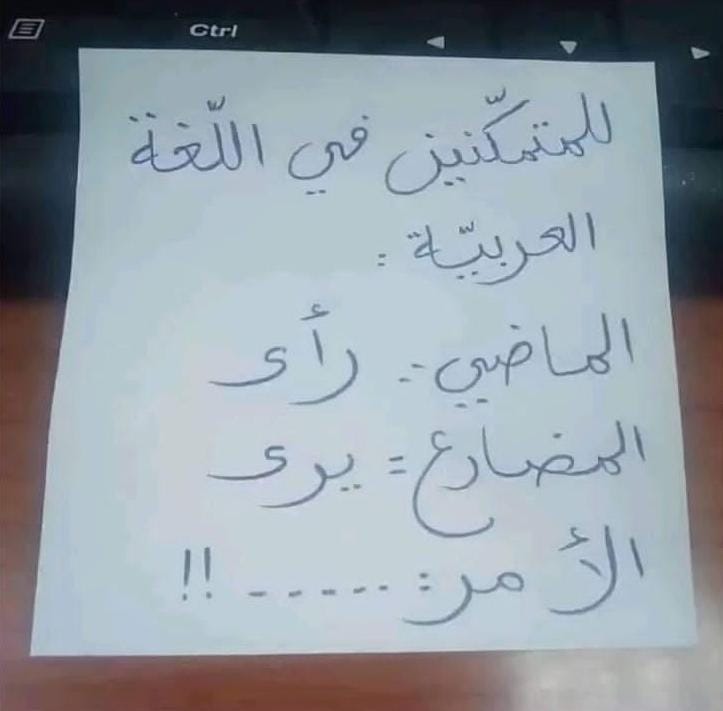 Ctrl
للمتمكّنين في اللّغة
العربيّة :
الماضي : رأى
المضارع : يرى
الأمر : ...... !!